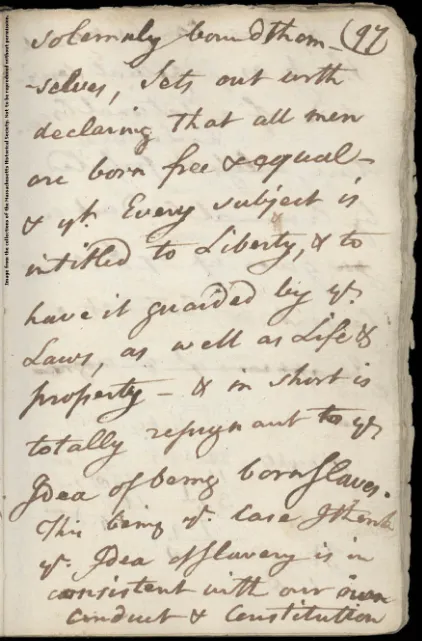 solemnly bound them- (97)
-selves, sets out with
declaring that all men
are born free & equal-
& yt. Every subject is
intitled to Liberty, & to
have it guarded by ye.
Laws, as well as Life &
property - & in short is
totally repugnant to ye.
Idea of being born slaves.
This being ye. Case I think
ye. Idea of Slavery is in
consistent with our own
conduct & Constitution
Image from the collections of the Massachusetts Historical Society. Not to be reproduced without permission.